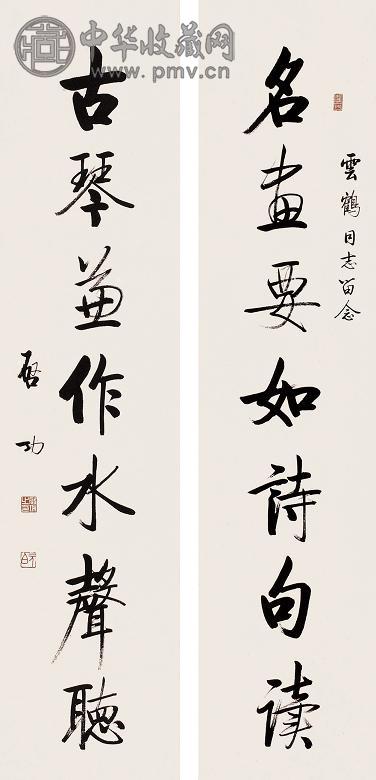 中华收藏网
www.pmv.cn
雲鶴同志留念
名画要如詩句读
古琴兼作水聲聽
启功